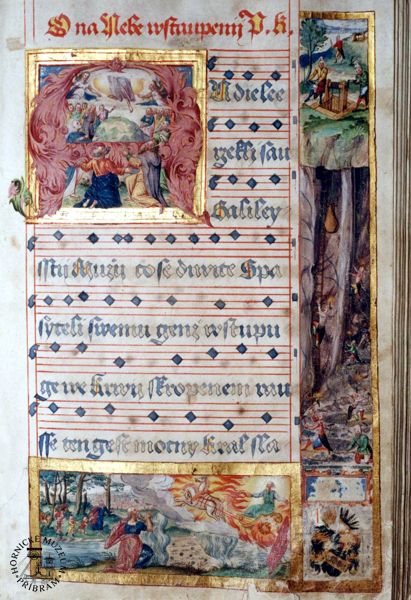 O na Nebe wstaupenij P. K.
ANdielee
rzekli sau
Galiley
sstij Mużij co se diwite Spa
syteli swemu genż wstupu
ge we krwij skropenem rau
sse ten gest mocny kral sla
HORNICKÉ MUZEUM
PŘÍBRAM